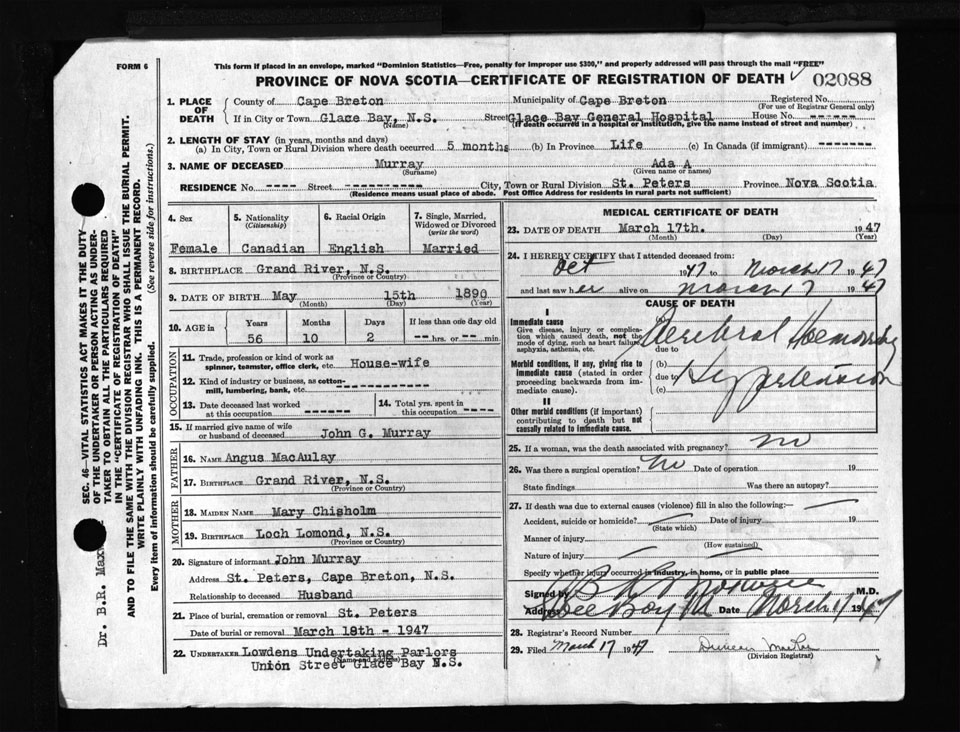 FORM 6
This form if placed in an envelope, marked "Dominion Statistics—Free, penalty for improper use $300," and properly addressed will pass through the mail "FREE"
PROVINCE OF NOVA SCOTIA—CERTIFICATE OF REGISTRATION OF DEATH 02088
1. PLACE OF DEATH
County of Cape Breton Municipality of Cape Breton Registered No.
(For use of Registrar General only)
If in City or Town Glace Bay, N.S. Street Glace Bay General Hospital House No. ------
(Name) (If death occurred in a hospital or institution, give the name instead of street and number)
2. LENGTH OF STAY (in years, months and days)
(a) In City, Town or Rural Division where death occurred 5 months (b) In Province Life (c) In Canada (if immigrant) -------
3. NAME OF DECEASED Murray Ada A
(Surname) (Given name or names)
RESIDENCE No. ---- Street ---------- City, Town or Rural Division St. Peters Province Nova Scotia
(Residence means usual place of abode. Post Office Address for residents in rural parts not sufficient)
4. Sex 5. Nationality (Citizenship) 6. Racial Origin 7. Single, Married, Widowed or Divorced (write the word)
Female Canadian English Married
8. BIRTHPLACE Grand River, N.S.
(Province or Country)
9. DATE OF BIRTH May 15th 1890
(Month) (Day) (Year)
10. AGE in Years Months Days If less than one day old
56 10 2 -- hrs. or -- min.
OCCUPATION
11. Trade, profession or kind of work as spinner, teamster, office clerk, etc. House-wife
12. Kind of industry or business, as cotton-mill, lumbering, bank, etc. ------------
13. Date deceased last worked at this occupation ------
14. Total yrs. spent in this occupation ----
15. If married give name of wife or husband of deceased John G. Murray
FATHER
16. NAME Angus MacAulay
17. BIRTHPLACE Grand River, N.S.
(Province or Country)
MOTHER
18. MAIDEN NAME Mary Chisholm
19. BIRTHPLACE Loch Lomond, N.S.
(Province or Country)
20. Signature of informant John Murray
Address St. Peters, Cape Breton, N.S.
Relationship to deceased Husband
21. Place of burial, cremation or removal St. Peters
Date of burial or removal March 18th - 1947
22. UNDERTAKER Lowdens Undertaking Parlors
(Name and address)
Union Street Glace Bay N.S.
MEDICAL CERTIFICATE OF DEATH
23. DATE OF DEATH March 17th. 1947
(Month) (Day) (Year)
24. I HEREBY CERTIFY that I attended deceased from:
Oct 1947 to March 17 1947
and last saw her alive on March 17 1947
CAUSE OF DEATH
I
Immediate cause
Give disease, injury or complication which caused death, not the mode of dying, such as heart failure, asphyxia, asthenia, etc.
(a) Cerebral Haemorrhage
due to
Morbid conditions, if any, giving rise to immediate cause (stated in order proceeding backwards from immediate cause).
(b)
due to Hypertension
(c)
II
Other morbid conditions (if important) contributing to death but not causally related to immediate cause.
25. If a woman, was the death associated with pregnancy? no
26. Was there a surgical operation? No Date of operation 19
State findings Was there an autopsy?
27. If death was due to external causes (violence) fill in also the following:
Accident, suicide or homicide? Date of injury 19
(State which)
Manner of injury
(How sustained)
Nature of injury
Specify whether injury occurred in industry, in home, or in public place
Signed by M.D.
Address Glace Bay NS Date March 17 1947
28. Registrar's Record Number
29. Filed March 17 1947 Duncan MacRae
(Division Registrar)
SEC. 46—VITAL STATISTICS ACT MAKES IT THE DUTY
OF THE UNDERTAKER OR PERSON ACTING AS UNDER-
TAKER TO OBTAIN ALL THE PARTICULARS REQUIRED
IN THE "CERTIFICATE OF REGISTRATION OF DEATH"
AND TO FILE THE SAME WITH THE DIVISION REGISTRAR WHO SHALL ISSUE THE BURIAL PERMIT.
WRITE PLAINLY WITH UNFADING INK. THIS IS A PERMANENT RECORD.
Every item of information should be carefully supplied. (See reverse side for instructions.)
Dr. B.R. Max